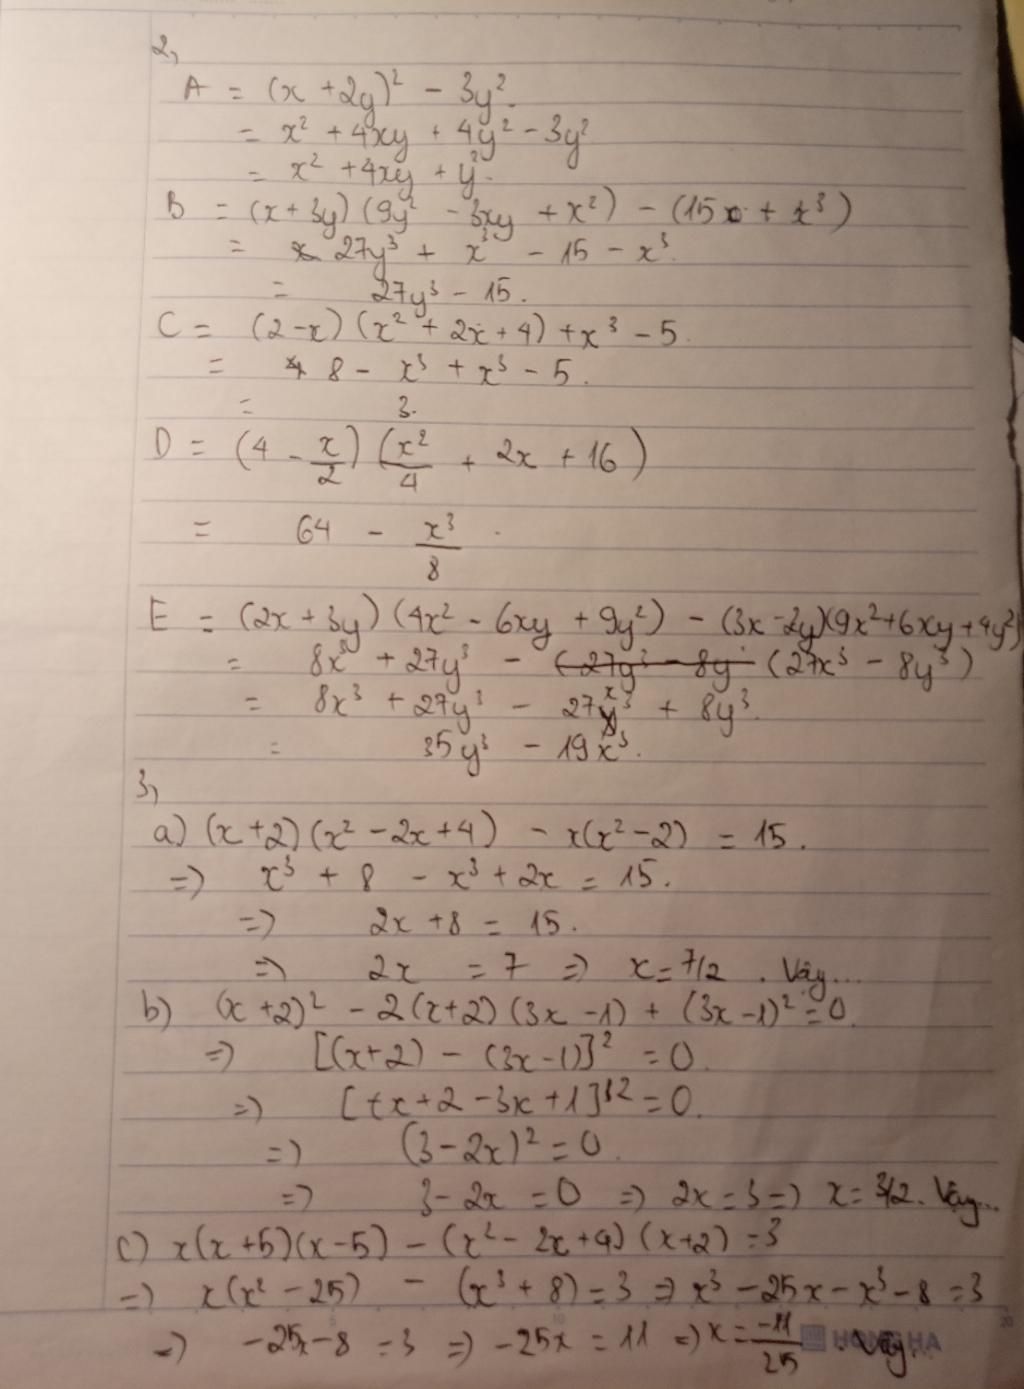 2,
A = (x + 2y)² - 3y².
= x² + 4xy + 4y² - 3y²
= x² + 4xy + y².
B = (x + 3y) (9y² - 3xy + x²) - (15 + x³)
= 27y³ + x³ - 15 - x³.
= 27y³ - 15.
C = (2 - x) (x² + 2x + 4) + x³ - 5.
= 8 - x³ + x³ - 5.
= 3.
D = (4 - x/2) (x²/4 + 2x + 16)
= 64 - x³/8.
E = (2x + 3y) (4x² - 6xy + 9y²) - (3x - 2y)(9x² + 6xy + 4y²)
= 8x³ + 27y³ - (27x³ - 8y³)
= 8x³ + 27y³ - 27x³ + 8y³.
= 35y³ - 19x³.
3,
a) (x + 2) (x² - 2x + 4) - x(x² - 2) = 15.
=> x³ + 8 - x³ + 2x = 15.
=> 2x + 8 = 15.
=> 2x = 7 => x = 7/2. Vậy...
b) (x + 2)² - 2(x + 2) (3x - 1) + (3x - 1)² = 0.
=> [(x + 2) - (3x - 1)]² = 0.
=> [x + 2 - 3x + 1]² = 0.
=> (3 - 2x)² = 0.
=> 3 - 2x = 0 => 2x = 3 => x = 3/2. Vậy...
c) x(x + 5)(x - 5) - (x² - 2x + 4) (x + 2) = 3
=> x(x² - 25) - (x³ + 8) = 3 => x³ - 25x - x³ - 8 = 3
=> -25x - 8 = 3 => -25x = 11 => x = -11/25. Vậy...
HONG HA